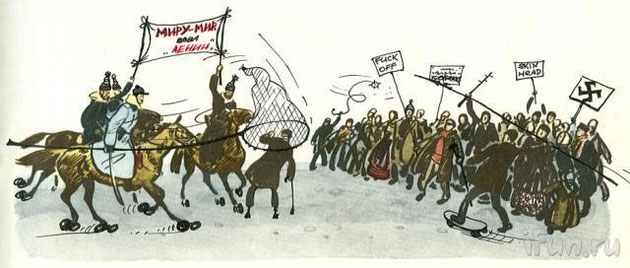 МИРУ-МИР
ВОВА
"ЛЕНИН"
FUCK
OFF
SKIN
HEAD
ifun.ru